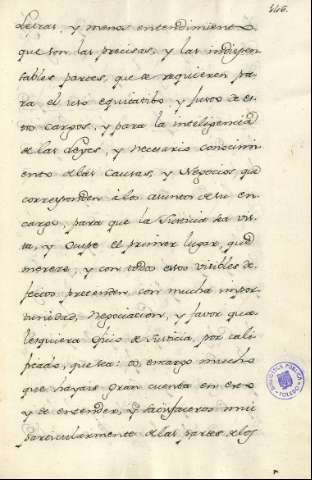 146.
Letras, y menos entendimiento
que son las precisas, y las indispen
sables partes, que se requieren pa
ra el recto equitatibo, y justo de es
tos cargos, y para la inteligencia
de las Leyes, y necesario conocimi
ento de las Causas, y Negocios que
corresponden à los asuntos de su en
cargo, para que la Justicia sea vis
ta, y ocupe el primer lugar, que
merece, y con todo estos visibles de
fectos pretenden con mucha impor
tunidad, negociacion, y favor qua
lesquiera Oficio de Justicia, por cali
ficado, que sea: os, encargo mucho
que hayais gran cuenta en esto
y de entender, y satisfaceros mui
particularmente de las partes de los
BIBLIOTECA PUBLICA
TOLEDO